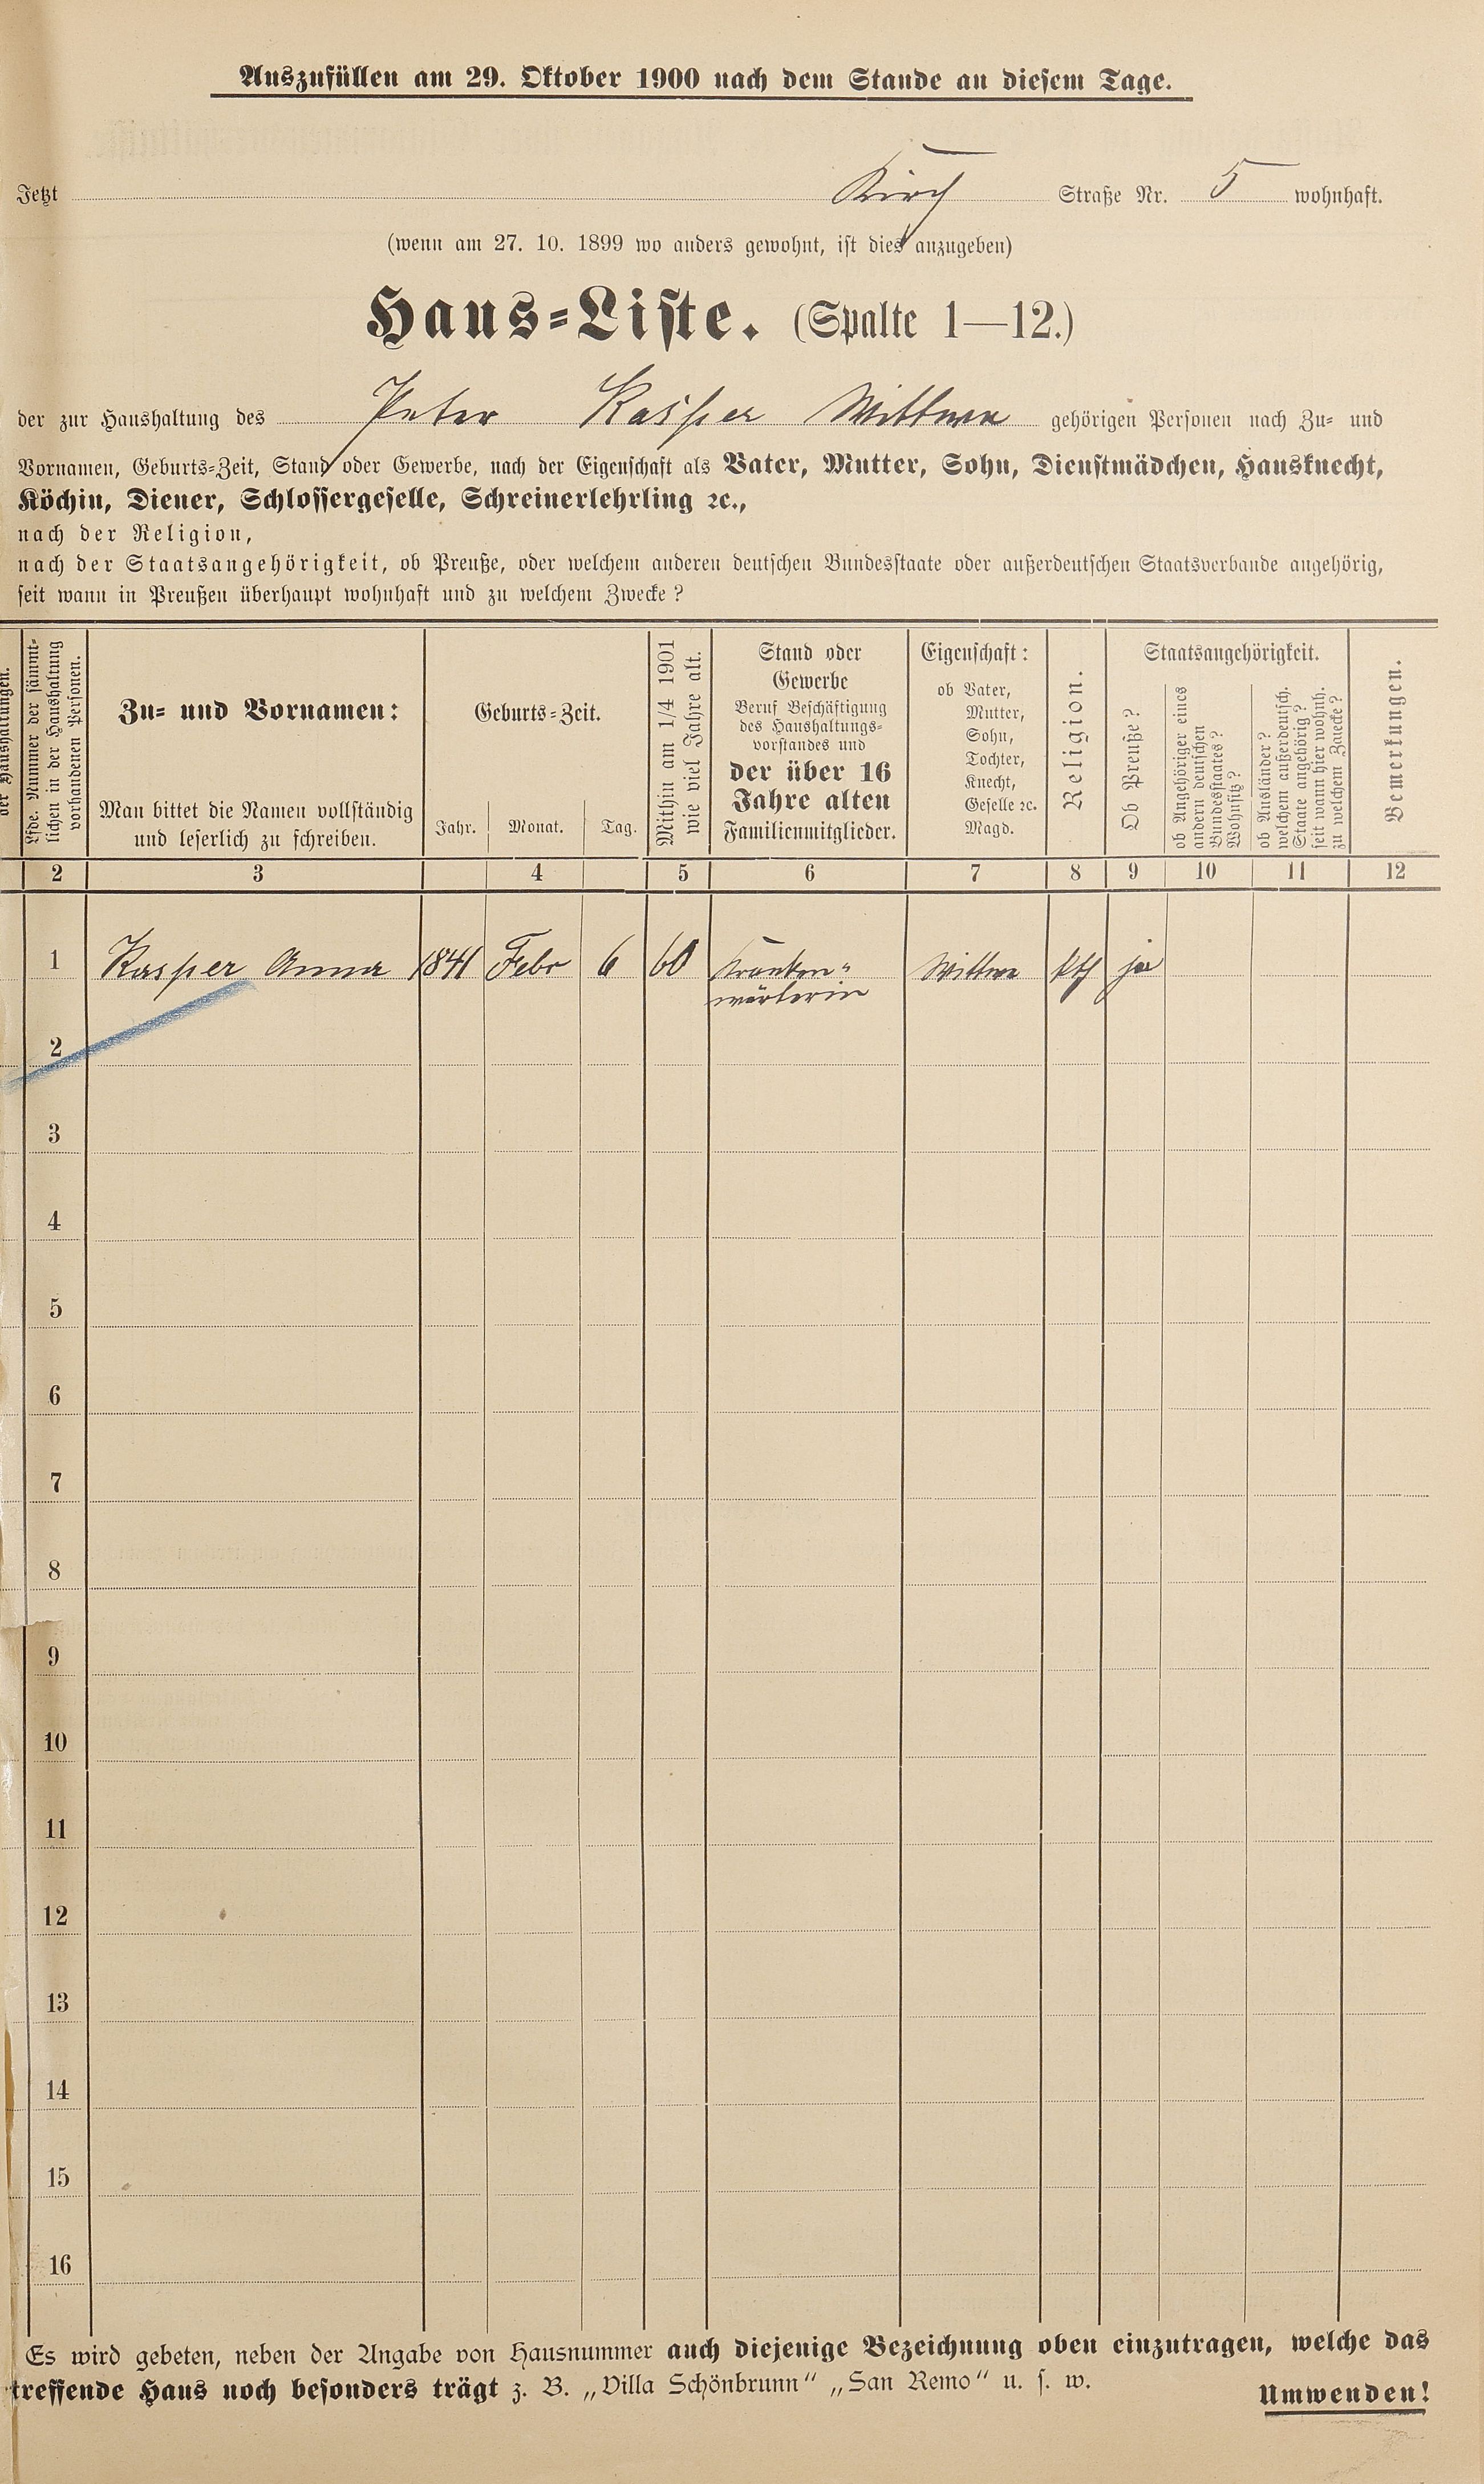 Auszufüllen am 29. Oktober 1900 nach dem Stande an diesem Tage.
Jetzt Kirch Straße Nr. 5 wohnhaft.
(wenn am 27. 10. 1899 wo anders gewohnt, ist dies anzugeben)
Haus=Liste. (Spalte 1—12.)
der zur Haushaltung des Peter Kasper Wittwe gehörigen Personen nach Zu= und
Vornamen, Geburts=Zeit, Stand oder Gewerbe, nach der Eigenschaft als Vater, Mutter, Sohn, Dienstmädchen, Hausknecht,
Köchin, Diener, Schlossergeselle, Schreinerlehrling ꝛc.,
nach der Religion,
nach der Staatsangehörigkeit, ob Preuße, oder welchem anderen deutschen Bundesstaate oder außerdeutschen Staatsverbande angehörig,
seit wann in Preußen überhaupt wohnhaft und zu welchem Zwecke?
der Haushaltungen.
Lfde. Nummer der sämmt=
lichen in der Haushaltung
vorhandenen Personen.
Zu= und Vornamen:
Man bittet die Namen vollständig
und leserlich zu schreiben.
Geburts=Zeit.
Jahr. Monat. Tag.
Mithin am 1/4 1901
wie viel Jahre alt.
Stand oder
Gewerbe
Beruf Beschäftigung
des Haushaltungs=
vorstandes und
der über 16
Jahre alten
Familienmitglieder.
Eigenschaft:
ob Vater,
Mutter,
Sohn,
Tochter,
Knecht,
Geselle ꝛc.
Magd.
Religion.
Staatsangehörigkeit.
Ob Preuße?
ob Angehöriger eines
andern deutschen
Bundesstaates?
Wohnsitz?
ob Ausländer?
welchem außerdeutsch.
Staate angehörig?
seit wann hier wohnh.
zu welchem Zwecke?
Bemerkungen.
2 3 4 5 6 7 8 9 10 11 12
1 Kasper Anna 1841 Febr 6 60 Kranken= Wittwe kth ja
wärterin
2
3
4
5
6
7
8
9
10
11
12
13
14
15
16
Es wird gebeten, neben der Angabe von Hausnummer auch diejenige Bezeichnung oben einzutragen, welche das
treffende Haus noch besonders trägt z. B. „Villa Schönbrunn" „San Remo" u. s. w.
Umwenden!